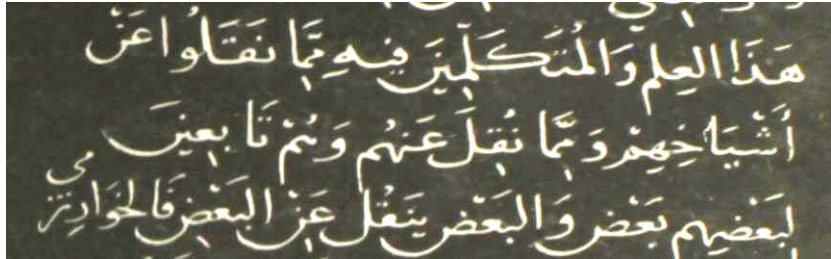 هَذَا العِلمِ وَالمُتَكَلِّمِينَ فِيهِ مِمَّا نَقَلُوا عَنْ
أَشْيَاخِهِمْ وَمِمَّا نُقِلَ عَنهُم وَهُمْ تَابِعِينَ
لِبَعْضِهِم بَعْض وَالبَعْض يَنقُل عَنْ البَعْض فَالخَوَارِزْمِي